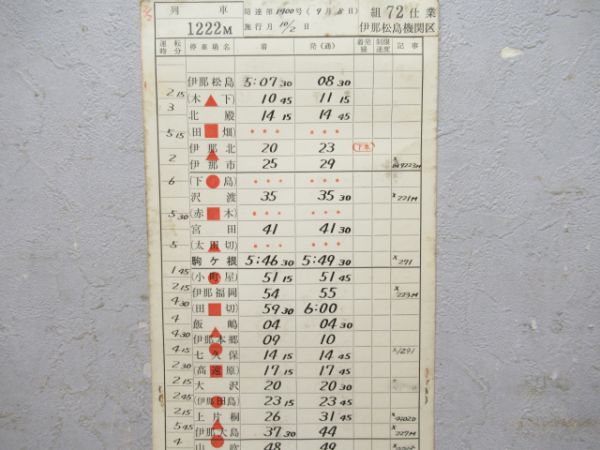 列車 局達第1900号(9月8日) 組72仕業
1222M 施行月10/2日 伊那松島機関区
運転時分 停車場名 着 発(通) 着発線 制限速度 記事
伊那松島 5:07 30 08 30
2 15
(木下) 10 45 11 15
3
北殿 14 15 14 45
(田畑)
5 15
伊那北 20 23 (下本)
2
伊那市 25 29 9223M
(下島)
6
沢渡 35 35 30 x 221M
(赤木)
5 30
宮田 41 41 30
(太田切)
5
駒ヶ根 5:46 30 5:49 30 x 291
1 45
(小町屋) 51 15 51 45
2 15
伊那福岡 54 55 x 223M
4 30
(田切) 59 30 6:00
4
飯嶋 04 04 30
4 30
伊那本郷 09 10
4 15
七久保 14 15 14 45 x 1291
2 30
(高遠原) 17 15 17 45
2 15
大沢 20 20 30
2 45
(伊那田島) 23 15 23 45
2 15
上片桐 26 31 45
5 45
伊那大島 37 30 44 x 227M
4
山吹 48 49